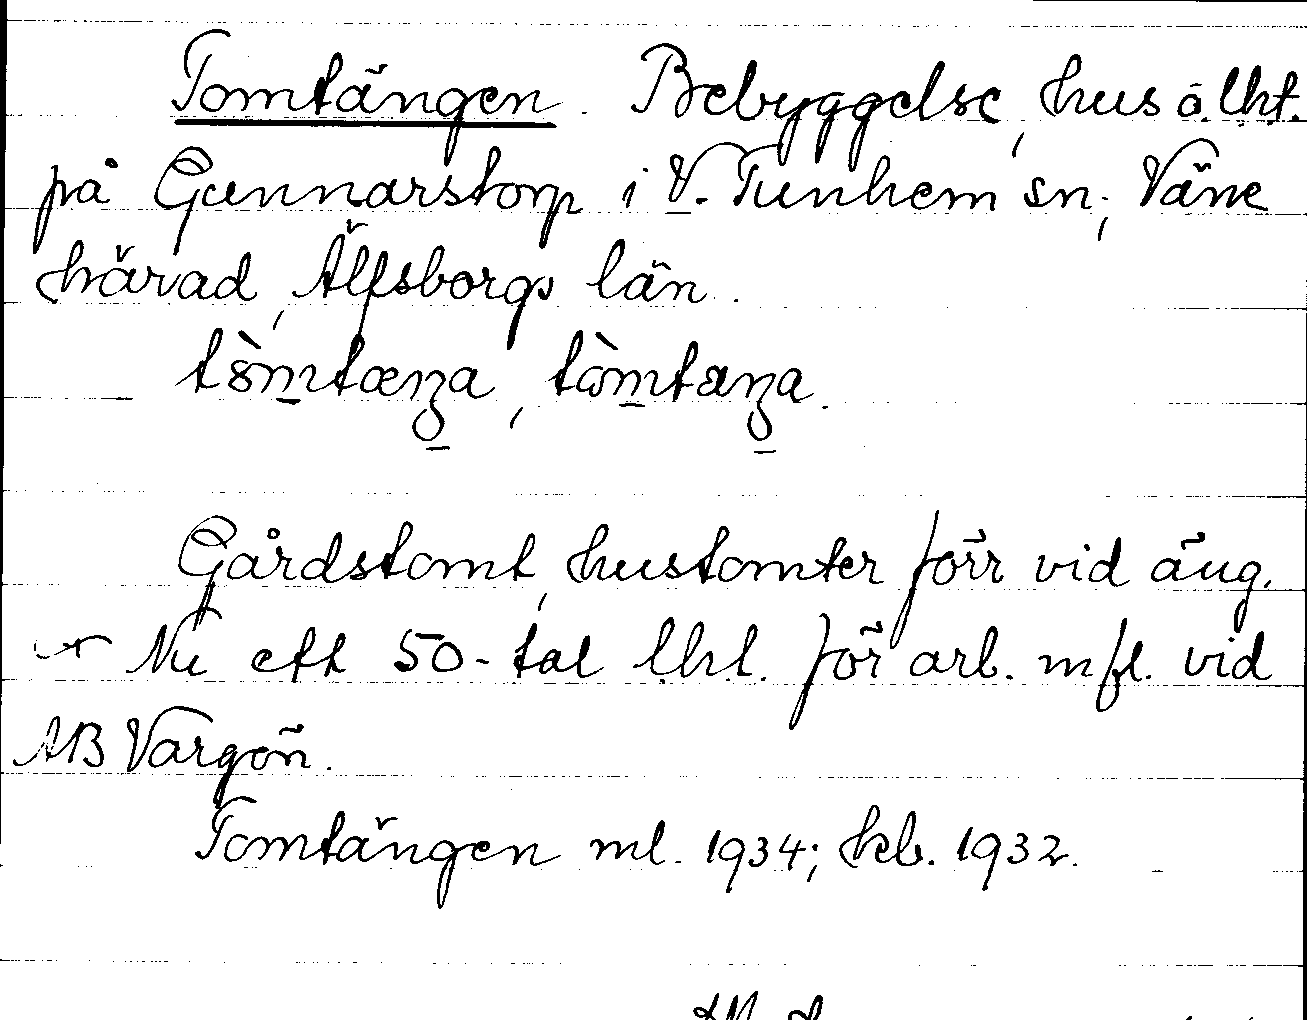 Tomtängen. Bebyggelse, hus o. lht.
på Gunnarstorp i V. Tunhem sn; Väne
härad, Älfsborgs län.
Gårdstomt, hustomter förr vid äng.
Nu ett 50-tal lht. för arb. mfl. vid
AB Vargön.
Tomtängen ml. 1934; kb. 1932.